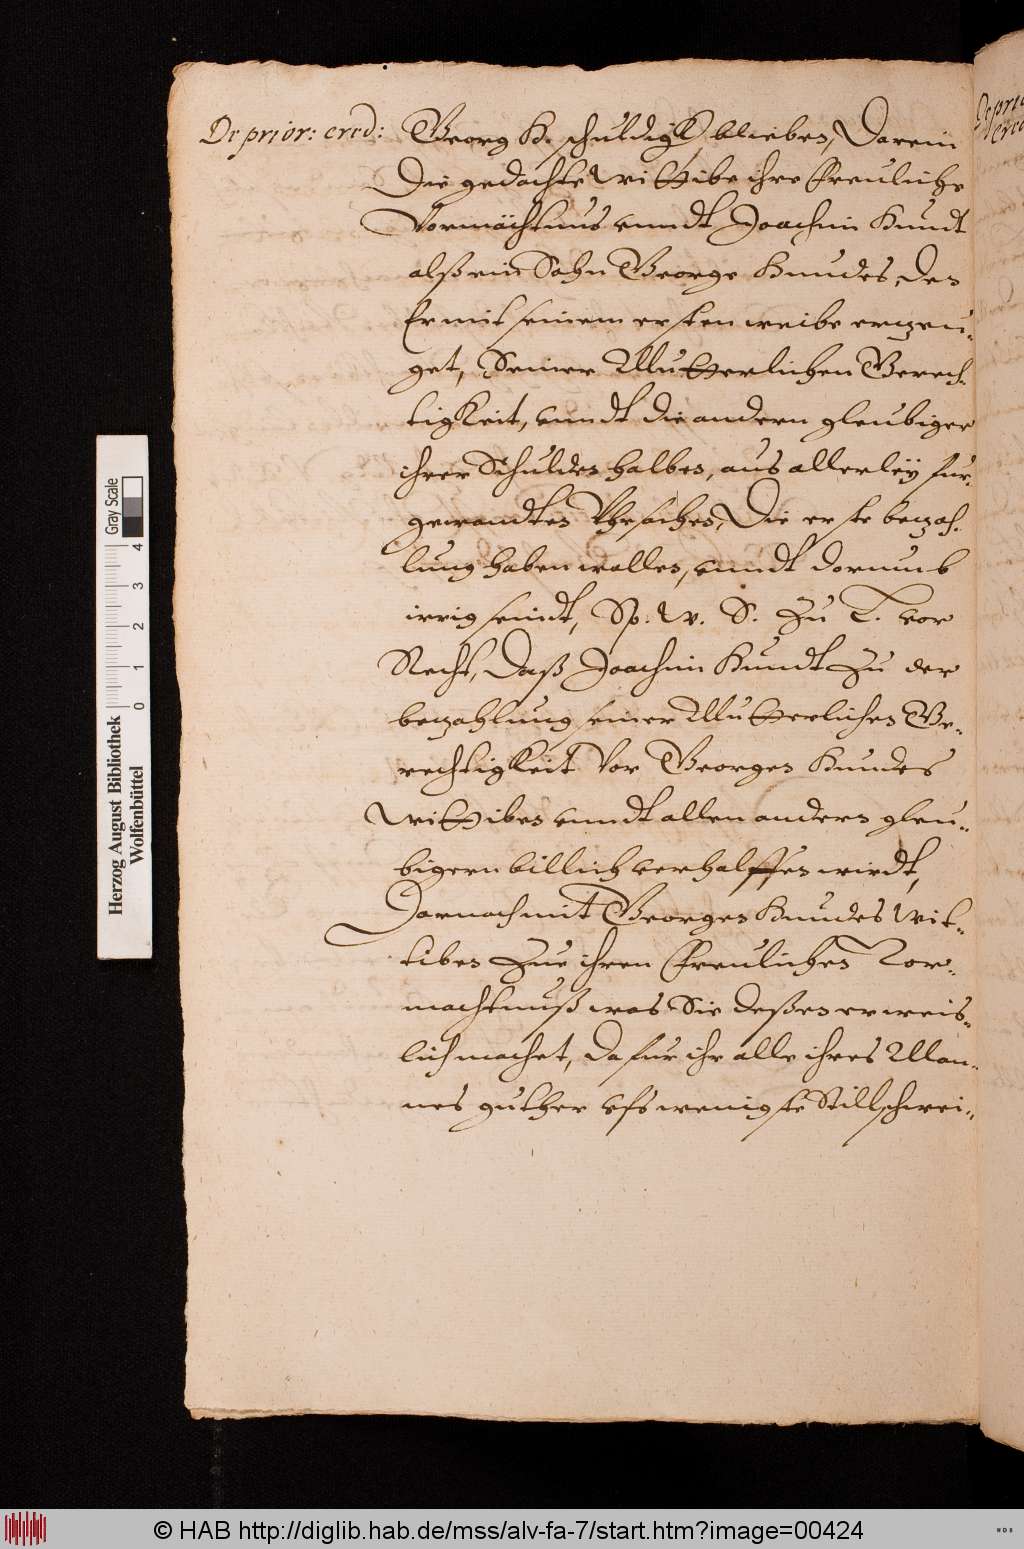 De prior: cred:
Georg K. schuldigk blieben, Darein
Die gedachte Wittibe ihre Freuliche
Vormächtnus vnndt Joachim Kundt
alß ein Sohn George Kundes, den
Er mit seinem ersten weibe erzeu-
get, Seiner Mutterlichen Gerech-
tigkeit, vnndt die andern gleubiger
ihrer Schulden halben, aus allerleÿ fur-
gewandten Vhrsachen, Die erste bezah-
lung haben wollen, vnndt dorumb
irrig seindt, Sp. W. S. Zu L. vor
Recht, Daß Joachim Kundt Zu der
bezahlung seiner Mutterlichen Ge-
rechtigkeit vor Georgen Kundes
Wittiben vnndt allen andern gleu-
bigern billich verholffen wirdt,
Darnach mit Georgen Kundes Wit-
tiben Zue ihren Freulichen Vor-
machtnuß was Sie deßen erweis-
lich machet, Dafur ihr alle ihres Man-
nes guther vfs wenigste Stillschwei-
De prior
cred
Herzog August Bibliothek
Wolfenbüttel
0 1 2 3 4
Gray Scale
© HAB http://diglib.hab.de/mss/alv-fa-7/start.htm?image=00424